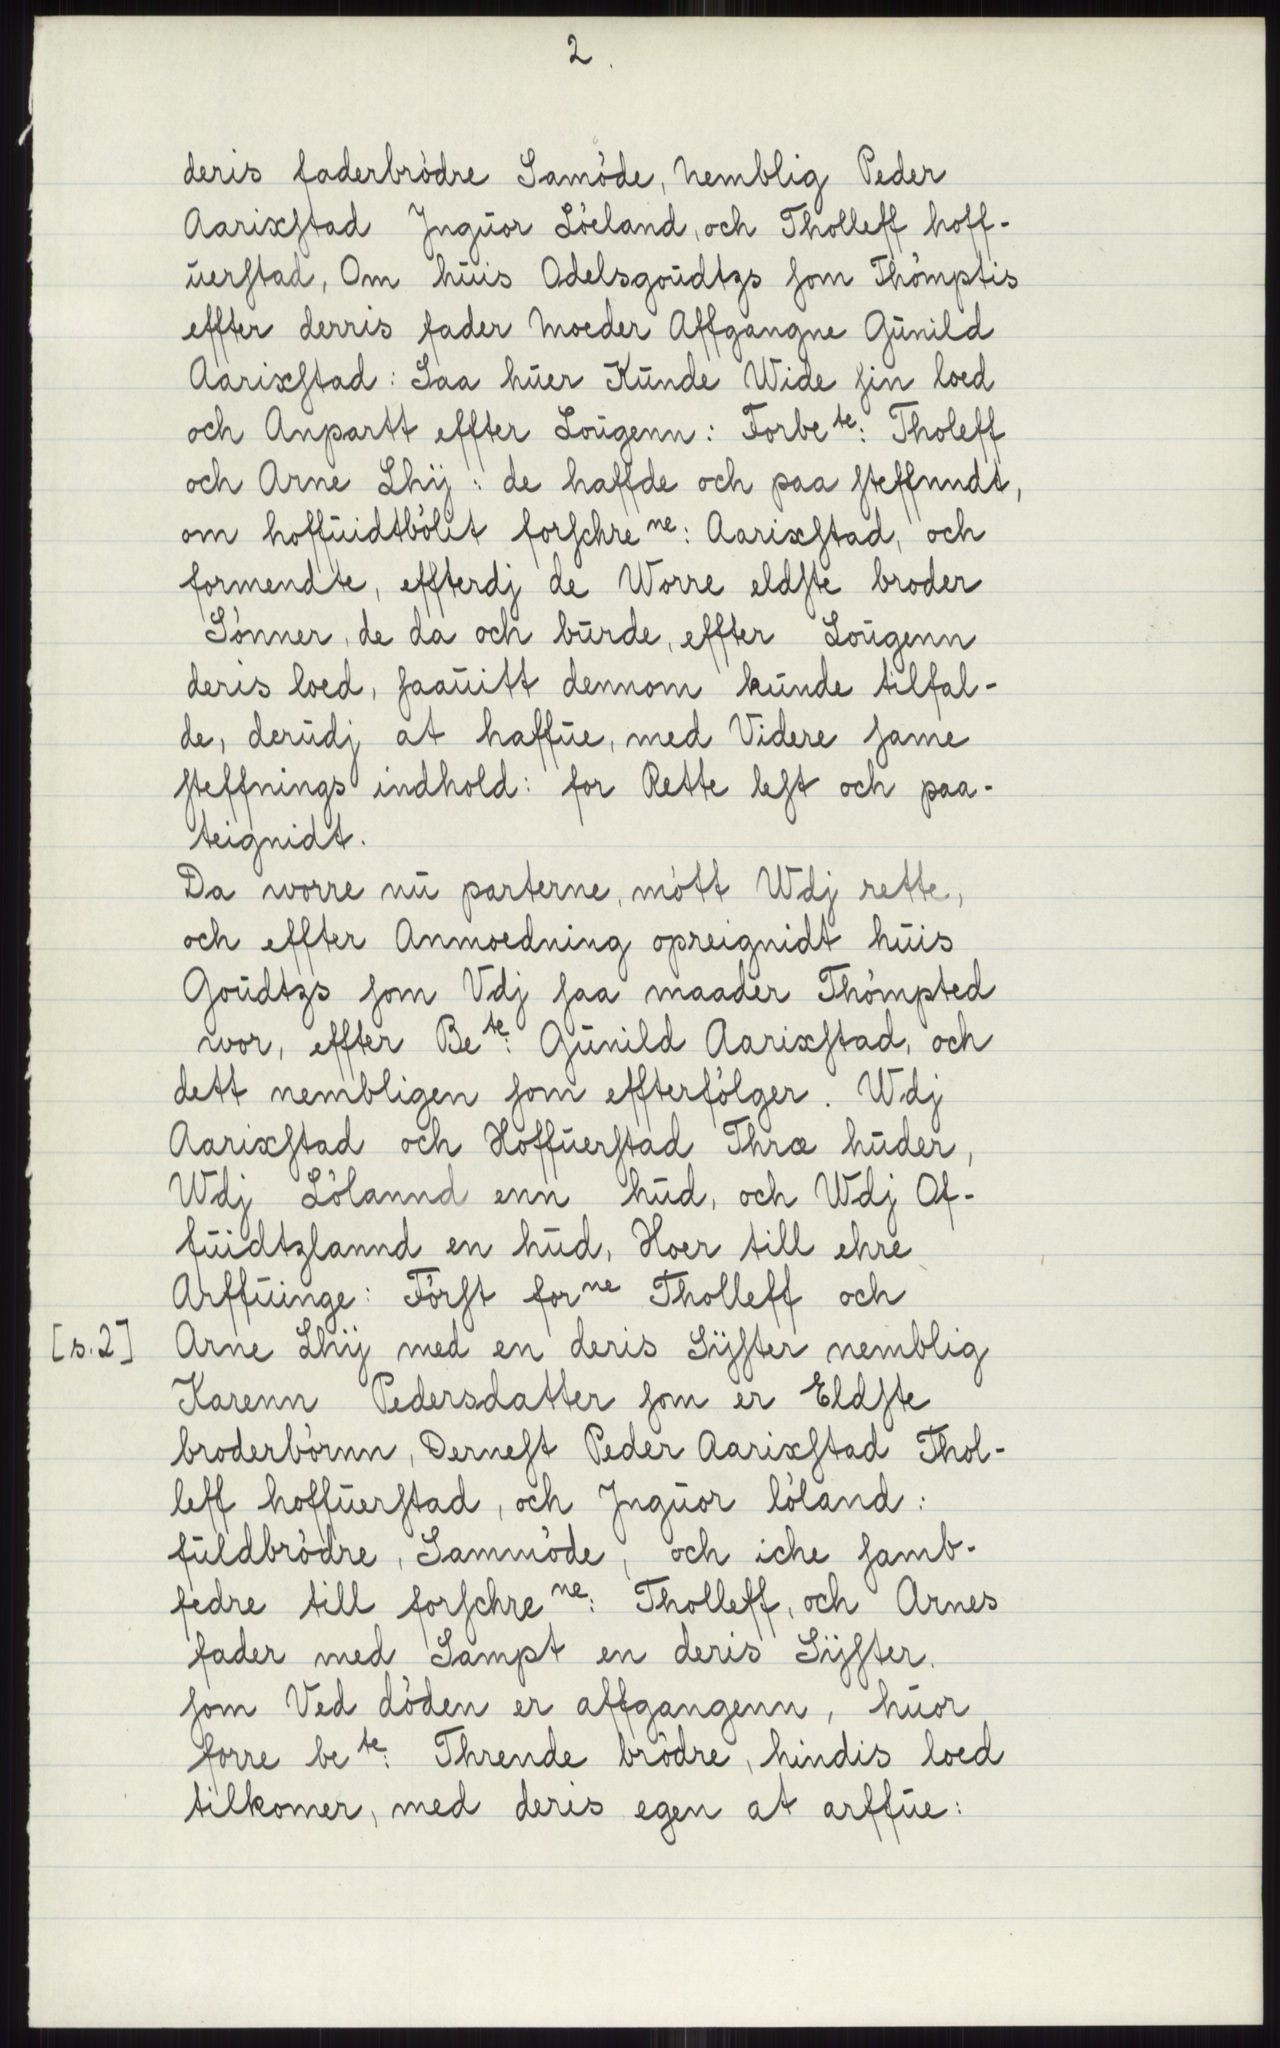 2.
deris faderbródre Samóde, nemblig Peder
Aarixstad Jnguor Lóeland, och Tholleff hoff-
uerstad, Om huis Odelsgoudtzs som Thómptis
effter derris fader Moeder Affgangne Gunild
Aarixstad: Saa huer Kunde Wide sin loed
och Anpartt effter Lougenn: Forbe te: Tholeff
och Arne Lhij: de haffde och paa steffnndt,
om hoffuidtbólit forschre ne: Aarixstad, och
formendte, effterdj de Worre eldste broder
Sónner, de da och burde, effter Lougenn
deris loed, saauitt dennom kunde tilfal-
de, derudj at haffue, med Videre same
steffnings indhold: for Rette lest och paa-
teignidt.
Da worre nu parterne, mótt Wdj rette,
och effter Anmoedning opreignidt huis
Goudtzs som Vdj saa maader Thómpted
wor, effter Be te: Gunild Aarixstad, och
dett nembligen som effterfólger. Wdj
Aarixstad och Hoffuerstad Thræ huder,
Wdj Lólannd enn hud, och Wdj Of-
fuidtzlannd en hud, Hoer till ehre
Arffuinge: Fórst for ne Tholleff och
[s.2] Arne Lhij med en deris Sÿster nemblig
Karenn Pedersdatter som er Eldste
broderbórnn, Dernest Peder Aarixstad Thol-
leff hoffuerstad, och Jnguor lóland:
fuldbródre, Sammóde, och iche samb-
fedre till forschre ne: Tholleff, och Arnes
fader med Sampt en deris Sÿster.
som Ved dóden er affgangenn, huor
forre be te: Thrende bródre, hindis loed
tilkomer, med deris egen at arffue: